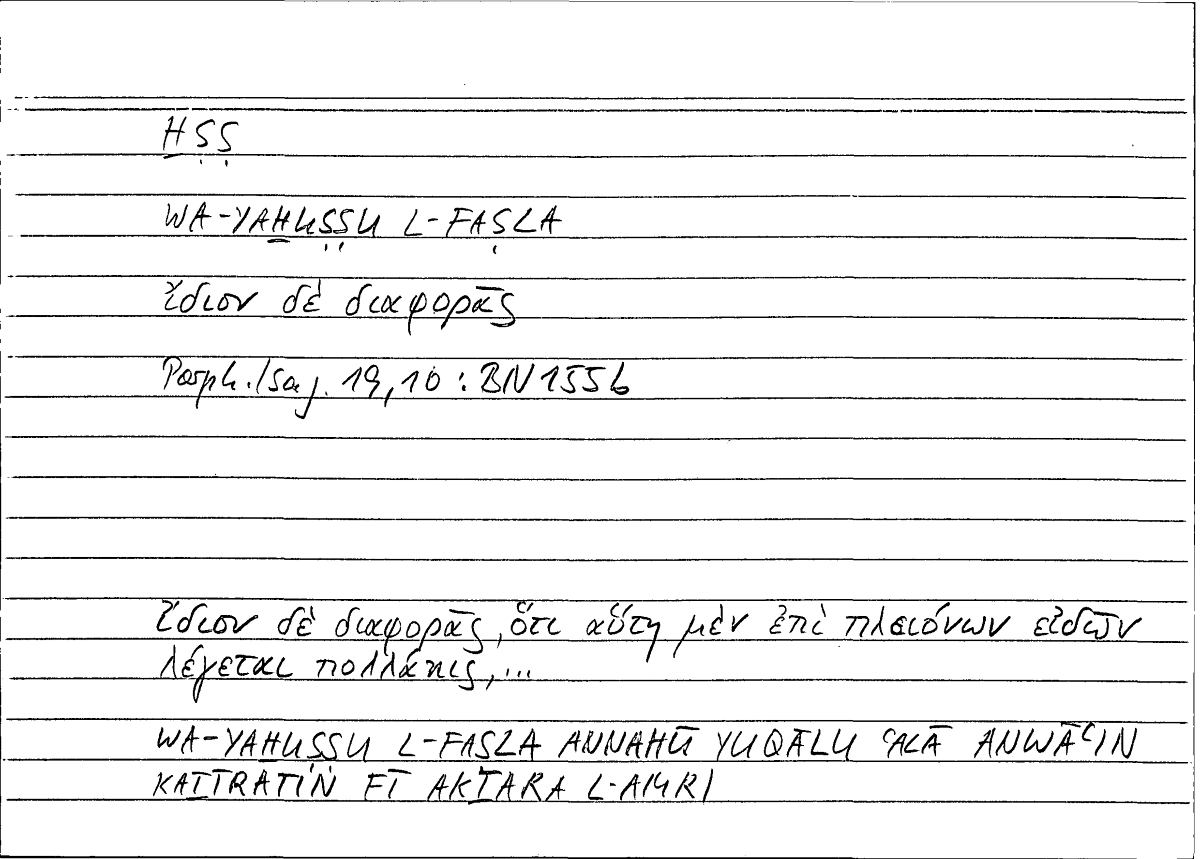 ḪṢṢ
WA-YAḪUṢṢU L-FAṢLA
ἴδιον δὲ διαφορᾶς
Porph. Isag. 19,10 : BN 155b
ἴδιον δὲ διαφορᾶς, ὅτι αὕτη μὲν ἐπὶ πλειόνων εἰδῶν
λέγεται πολλάκις, ...
WA-YAḪUṢṢU L-FAṢLA ANNAHŪ YUQĀLU ʿALĀ ANWĀʿIN
KAṮĪRATIN FĪ AKṮARA L-AMRI